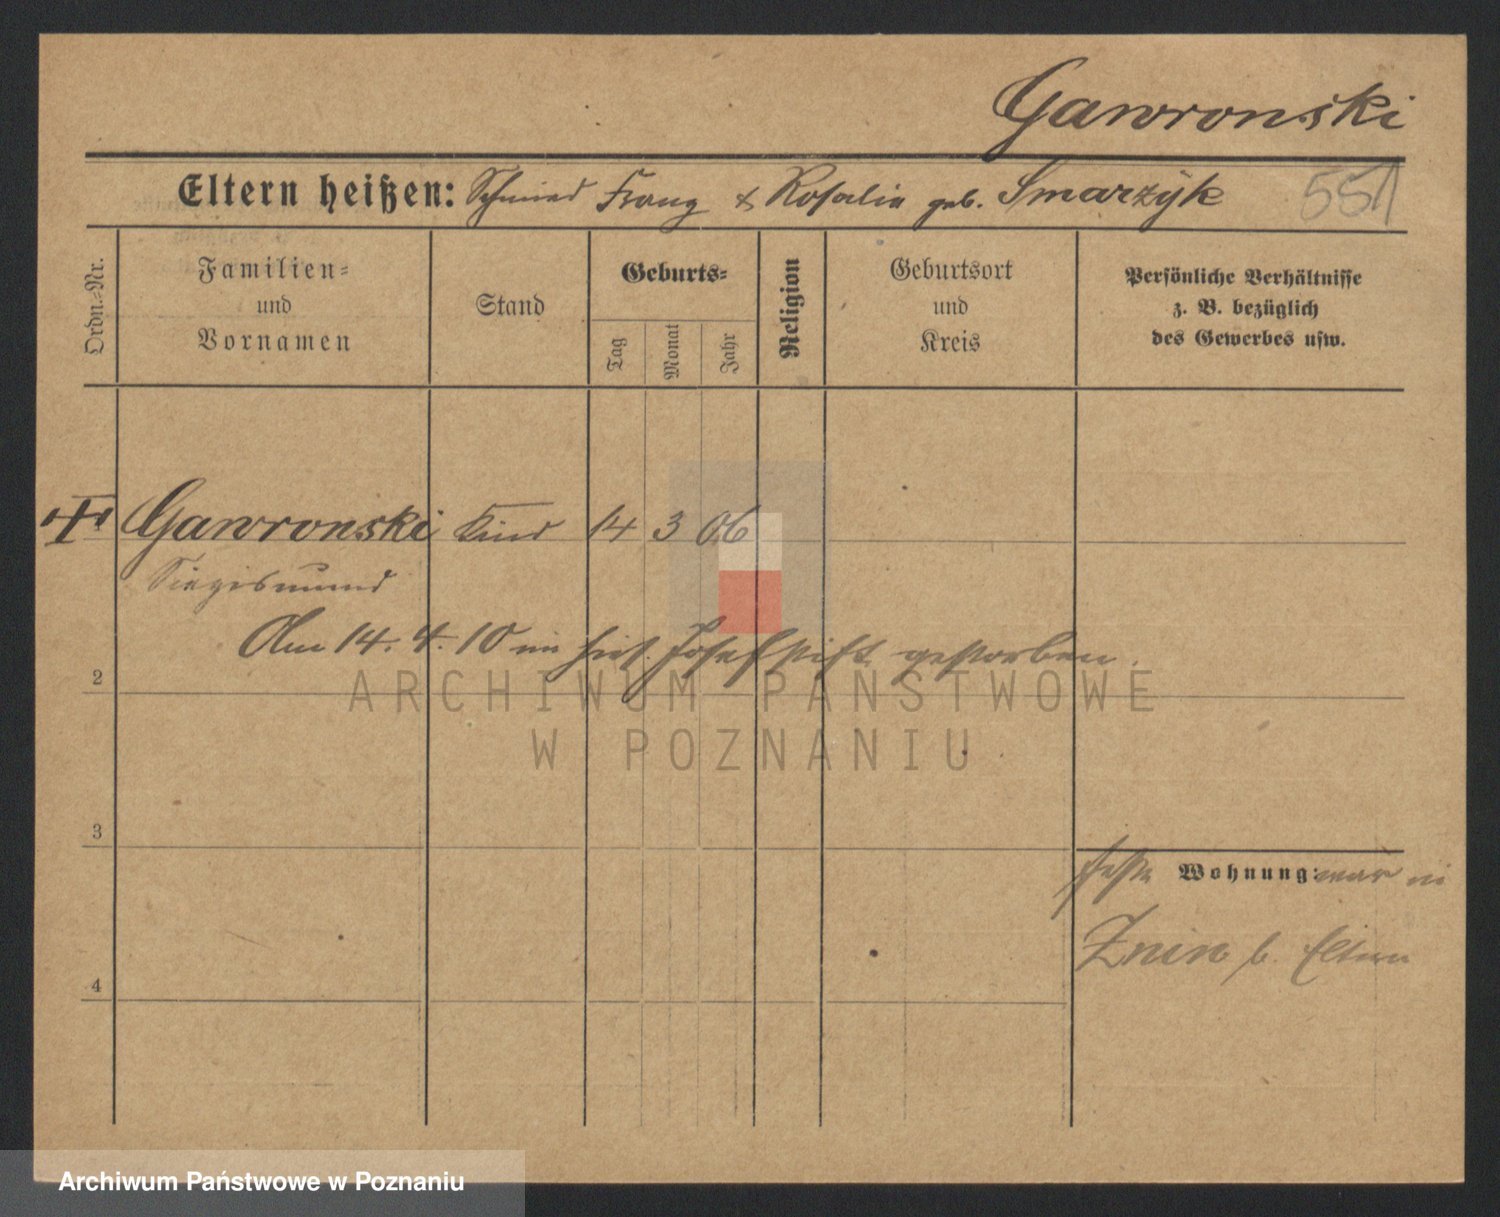 Gawronski
Eltern heißen: Schmied Franz & Rosalie geb. Smarzyk 551
Ordn.-Nr.
Familien-
und
Vornamen
Stand
Geburts-
Tag
Monat
Jahr
Religion
Geburtsort
und
Kreis
Persönliche Verhältnisse
z. B. bezüglich
des Gewerbes usw.
Gawronski Kind 14 3 06
Siegismund
Am 14. 4. 10 im hies. Josefstift gestorben.
2
ARCHIWUM PAŃSTWOWE
W POZNANIU
3
feste Wohnung: war in
Znin b. Eltern
4
Archiwum Państwowe w Poznaniu